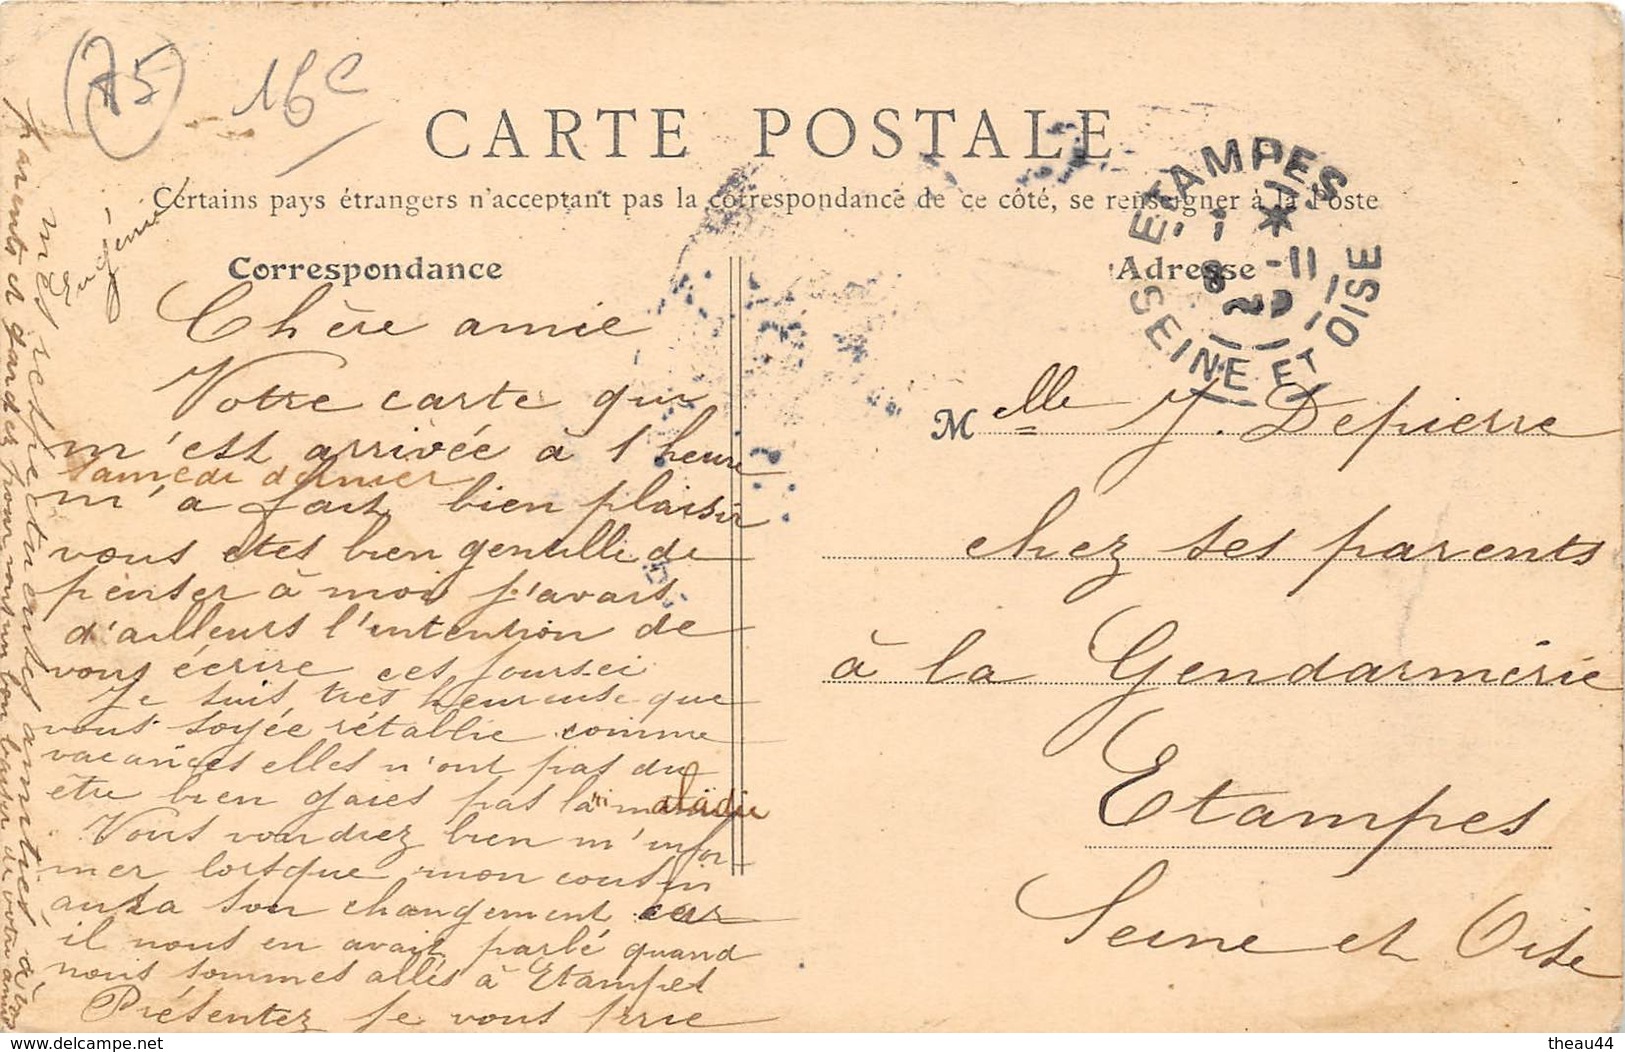 75
16e
CARTE POSTALE
Certains pays étrangers n'acceptant pas la correspondance de ce côté, se renseigner à la Poste
Correspondance
Chère amie
Votre carte qui
m'est arrivée à 1 heure
samedi dernier
m'a fait bien plaisir
vous etes bien gentille de
penser à moi j'avais
d'ailleurs l'intention de
vous écrire ces jours-ci
Je suis très heureuse que
vous soyée rétablie comme
vacances elles n'ont pas du
être bien gaies pas la maladie
Vous voudrez bien m'infor-
mer lorsque mon cousin
aura son changement car
il nous en avait parlé quand
nous sommes allés à Etampes
Présentez je vous prie
mes respectueuses amitiés à vos
parents et gardez pour vous un bon baiser de votre amie
Eugénie
ETAMPES
SEINE ET OISE
8 -11
Adresse
Melle J. Depierre
chez ses parents
à la Gendarmérie
Etampes
Seine et Oise
www.delcampe.net
theau44